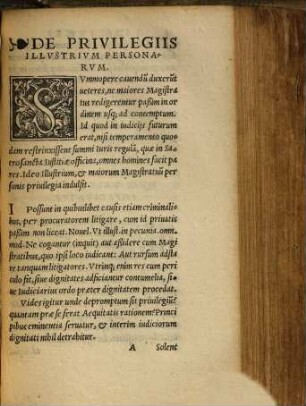 DE PRIVILEGIIS
ILLVSTRIVM PERSONA-
RVM.
SVmmopere cauendũ duxerũt
ueteres, ne maiores Magistra
tus redigerentur paßim in or
dinem usq; ad contemptum.
Id quod in iudicijs futurum
erat, nisi temperamento quo
dam restrinxissent summi iuris regulã, quæ in Sa
crosancta Iustitiæ officina, omnes homines facit pa
res. Ideo Illustrium, & maiorum Magistratuũ per
sonis priuilegia indulsit.
I Possunt in quibuslibet causis etiam criminalibus
bus, per procuratorem litigare, cum id priuatis
paßim non liceat. Nouel. Vt illust. in pecunia. omn.
mod. Ne cogantur (inquit) aut aßidere cum Magi
stratibus, quo ipsi loco iudicant: Aut rursum adsta
re tanquam litigatores. Vtrinq; enim res cum peri
culo fit, siue dignitates adficiantur contumelia, si-
ue Iudiciarius ordo præter dignitatem procedat.
Vides igitur unde depromptum sit priuilegiũ?
quantam præ se ferat Aequitatis rationem? Princi
pibus eminentia seruatur, & interim iudiciorum
dignitati nihil detrahitur.
A Solent